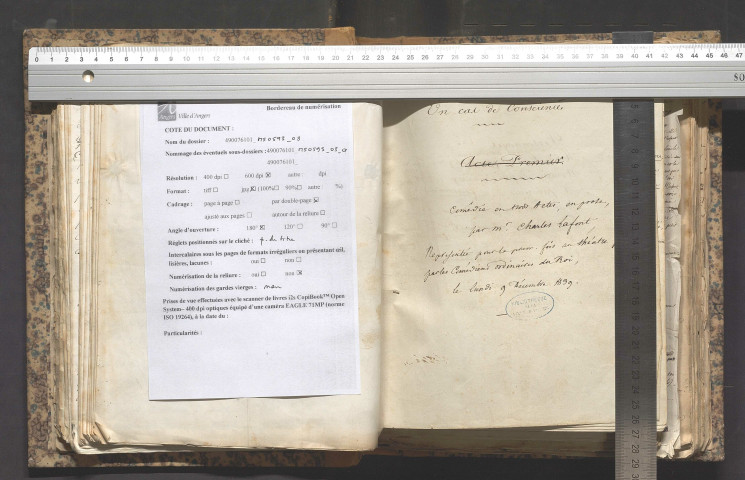 Ville d'Angers
Bordereau de numérisation
COTE DU DOCUMENT :
Nom du dossier : 490076101_MS0593_03
Nommage des éventuels sous-dossiers : 490076101_MS0593_03_
490076101_
Résolution : 400 dpi ☐ 600 dpi ☒ autre : dpi
Format : tiff ☐ jpg ☒ (100% ☐ 90% ☐ autre %)
Cadrage : page à page ☐ par double-page ☒
ajusté aux pages ☐ autour de la reliure ☐
Angle d'ouverture : 180° ☒ 120° ☐ 90° ☐
Réglets positionnés sur le cliché : p. de titre
Intercalaires sous les pages de formats irréguliers ou présentant œil,
lisières, lacunes : oui ☐ non ☐
Numérisation de la reliure : oui ☐ non ☒
Numérisation des gardes vierges : non
Prises de vue effectuées avec le scanner de livres i2s CopiBook™ Open
System- 400 dpi optiques équipé d'une caméra EAGLE 71MP (norme
ISO 19264), à la date du :
Particularités :
Un cas de Conscience
Acte Premier
Comédie en trois Actes, en prose,
par Mr. Charles Lafont
Représentée pour la prem. fois au théâtre
par les Comédiens ordinaires du Roi,
le lundi 9 Décembre 1839.